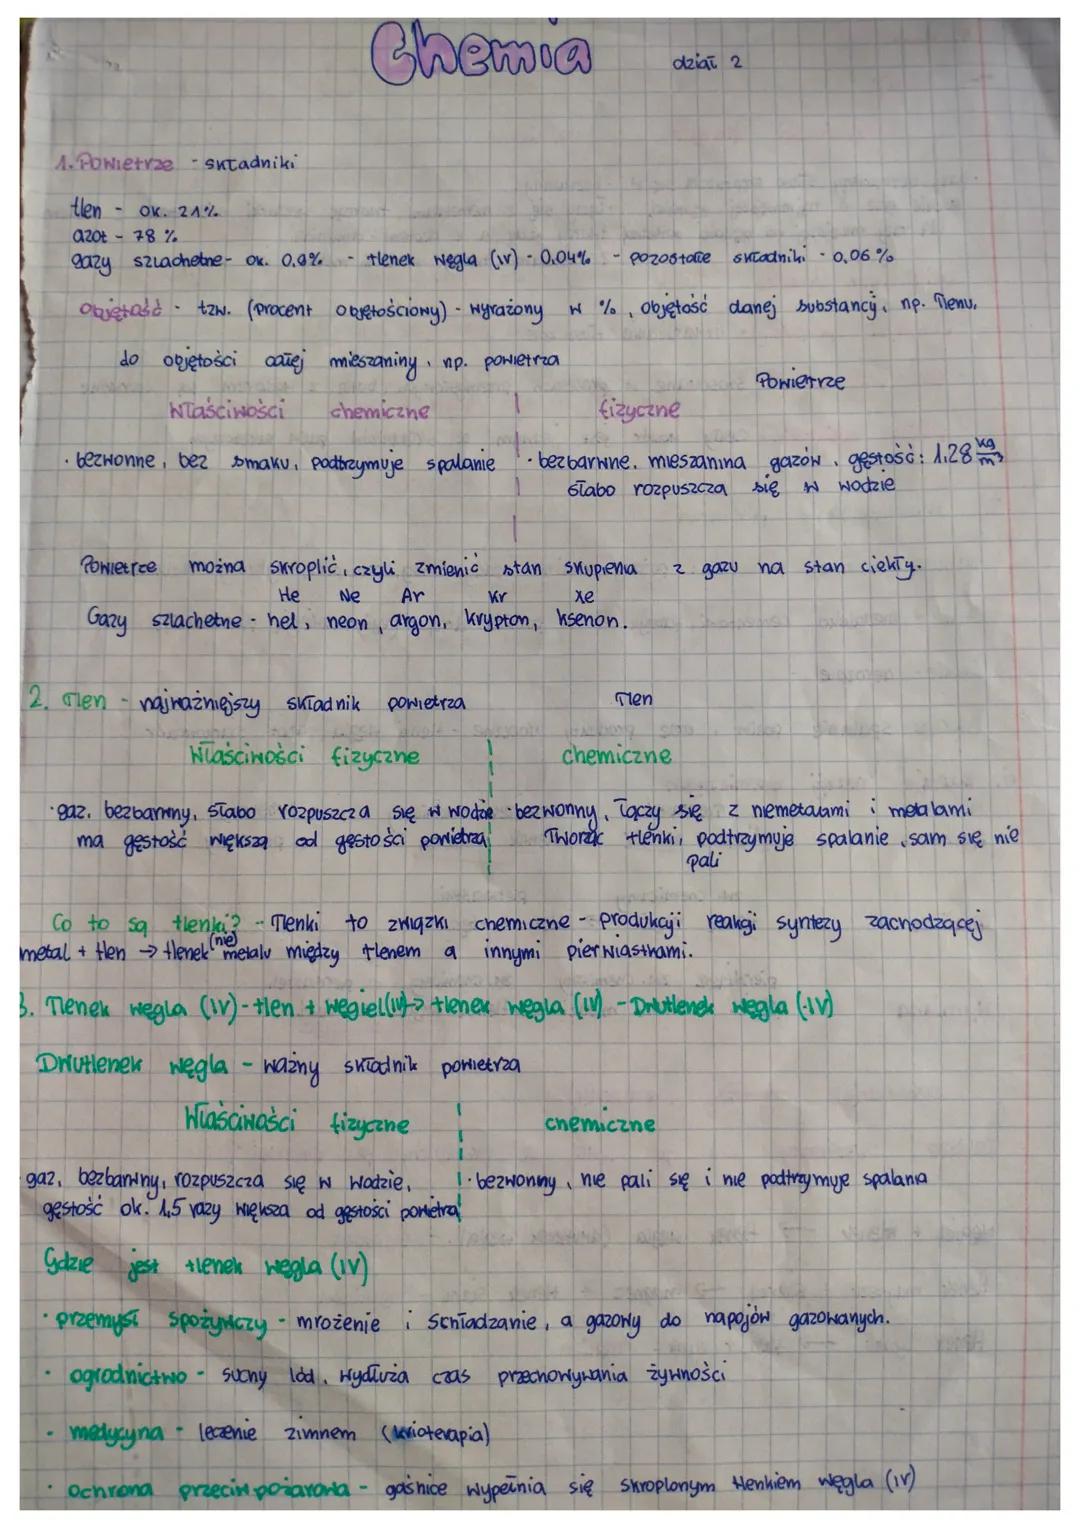 Chemia dział 2
1. Powietrze - składniki
tlen - ok. 21%
azot - 78 %
gazy szlachetne - ok. 0,9% - tlenek węgla (IV) - 0,04% - pozostałe składniki - 0,06 %
Objętość - tzw. (procent objętościowy) - wyrażony w %, objętość danej substancji, np. Tlenu,
do objętości całej mieszaniny, np. powietrza
Powietrze
Właściwości chemiczne | fizyczne
· bezwonne, bez smaku, podtrzymuje spalanie | · bezbarwne, mieszanina gazów, gęstość: 1,28 kg/m³
słabo rozpuszcza się w wodzie
Powietrze można skroplić, czyli zmienić stan skupienia z gazu na stan ciekły.
He Ne Ar Kr Xe
Gazy szlachetne - hel, neon, argon, krypton, ksenon.
2. Tlen - najważniejszy składnik powietrza Tlen
Właściwości fizyczne | chemiczne
· gaz, bezbarwny, słabo rozpuszcza się w wodzie · bezwonny, łączy się z niemetalami i metalami
ma gęstość większą od gęstości powietrza; Tworząc tlenki, podtrzymuje spalanie, sam się nie
pali
Co to są tlenki? - Tlenki to związki chemiczne - produkcji reakcji syntezy zachodzącej
metal + tlen → tlenek (nie) metalu między tlenem a innymi pierwiastkami.
3. Tlenek węgla (IV) - tlen + węgiel(IV) → tlenek węgla (IV) - Dwutlenek węgla (IV)
Dwutlenek węgla - ważny składnik powietrza
Właściwości fizyczne | chemiczne
gaz, bezbarwny, rozpuszcza się w wodzie, | · bezwonny, nie pali się i nie podtrzymuje spalania
gęstość ok. 1,5 razy większa od gęstości powietrza
Gdzie jest tlenek węgla (IV)
· przemysł spożywczy - mrożenie i schładzanie, a gazowy do napojów gazowanych.
· ogrodnictwo - suchy lód, wydłuża czas przechowywania żywności
· medycyna - leczenie zimnem (krioterapia)
· ochrona przeciwpożarowa - gaśnice wypełnia się skroplonym tlenkiem węgla (IV)